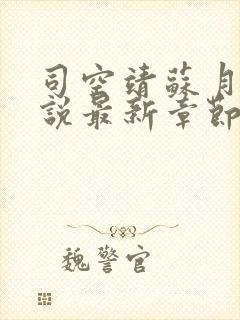 司空靖蘇月
說最新章節
魏警官